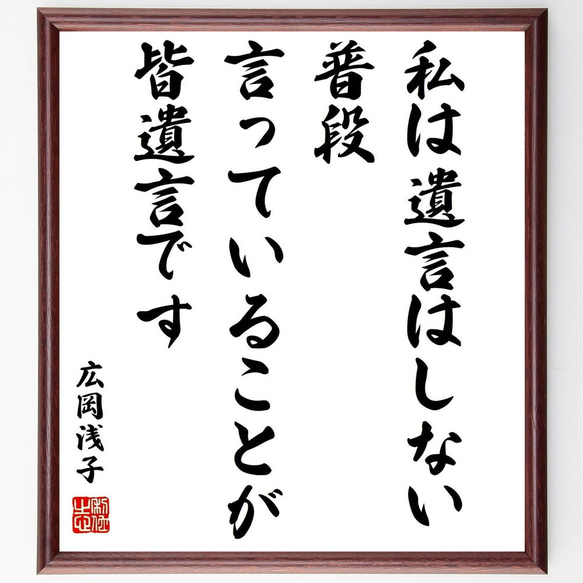 私は遺言はしない
普段
言っていることが
皆遺言です
広岡浅子